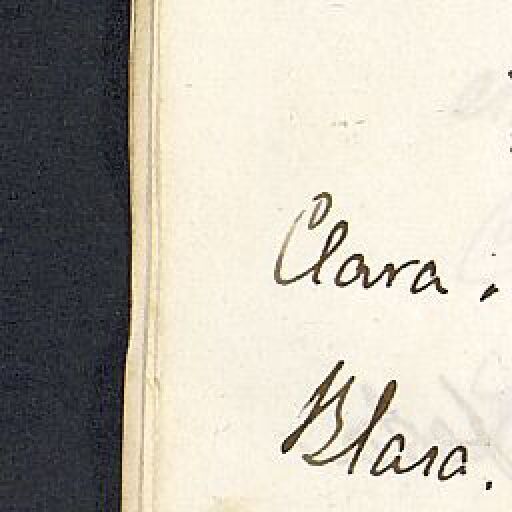 Clara.
Blara.